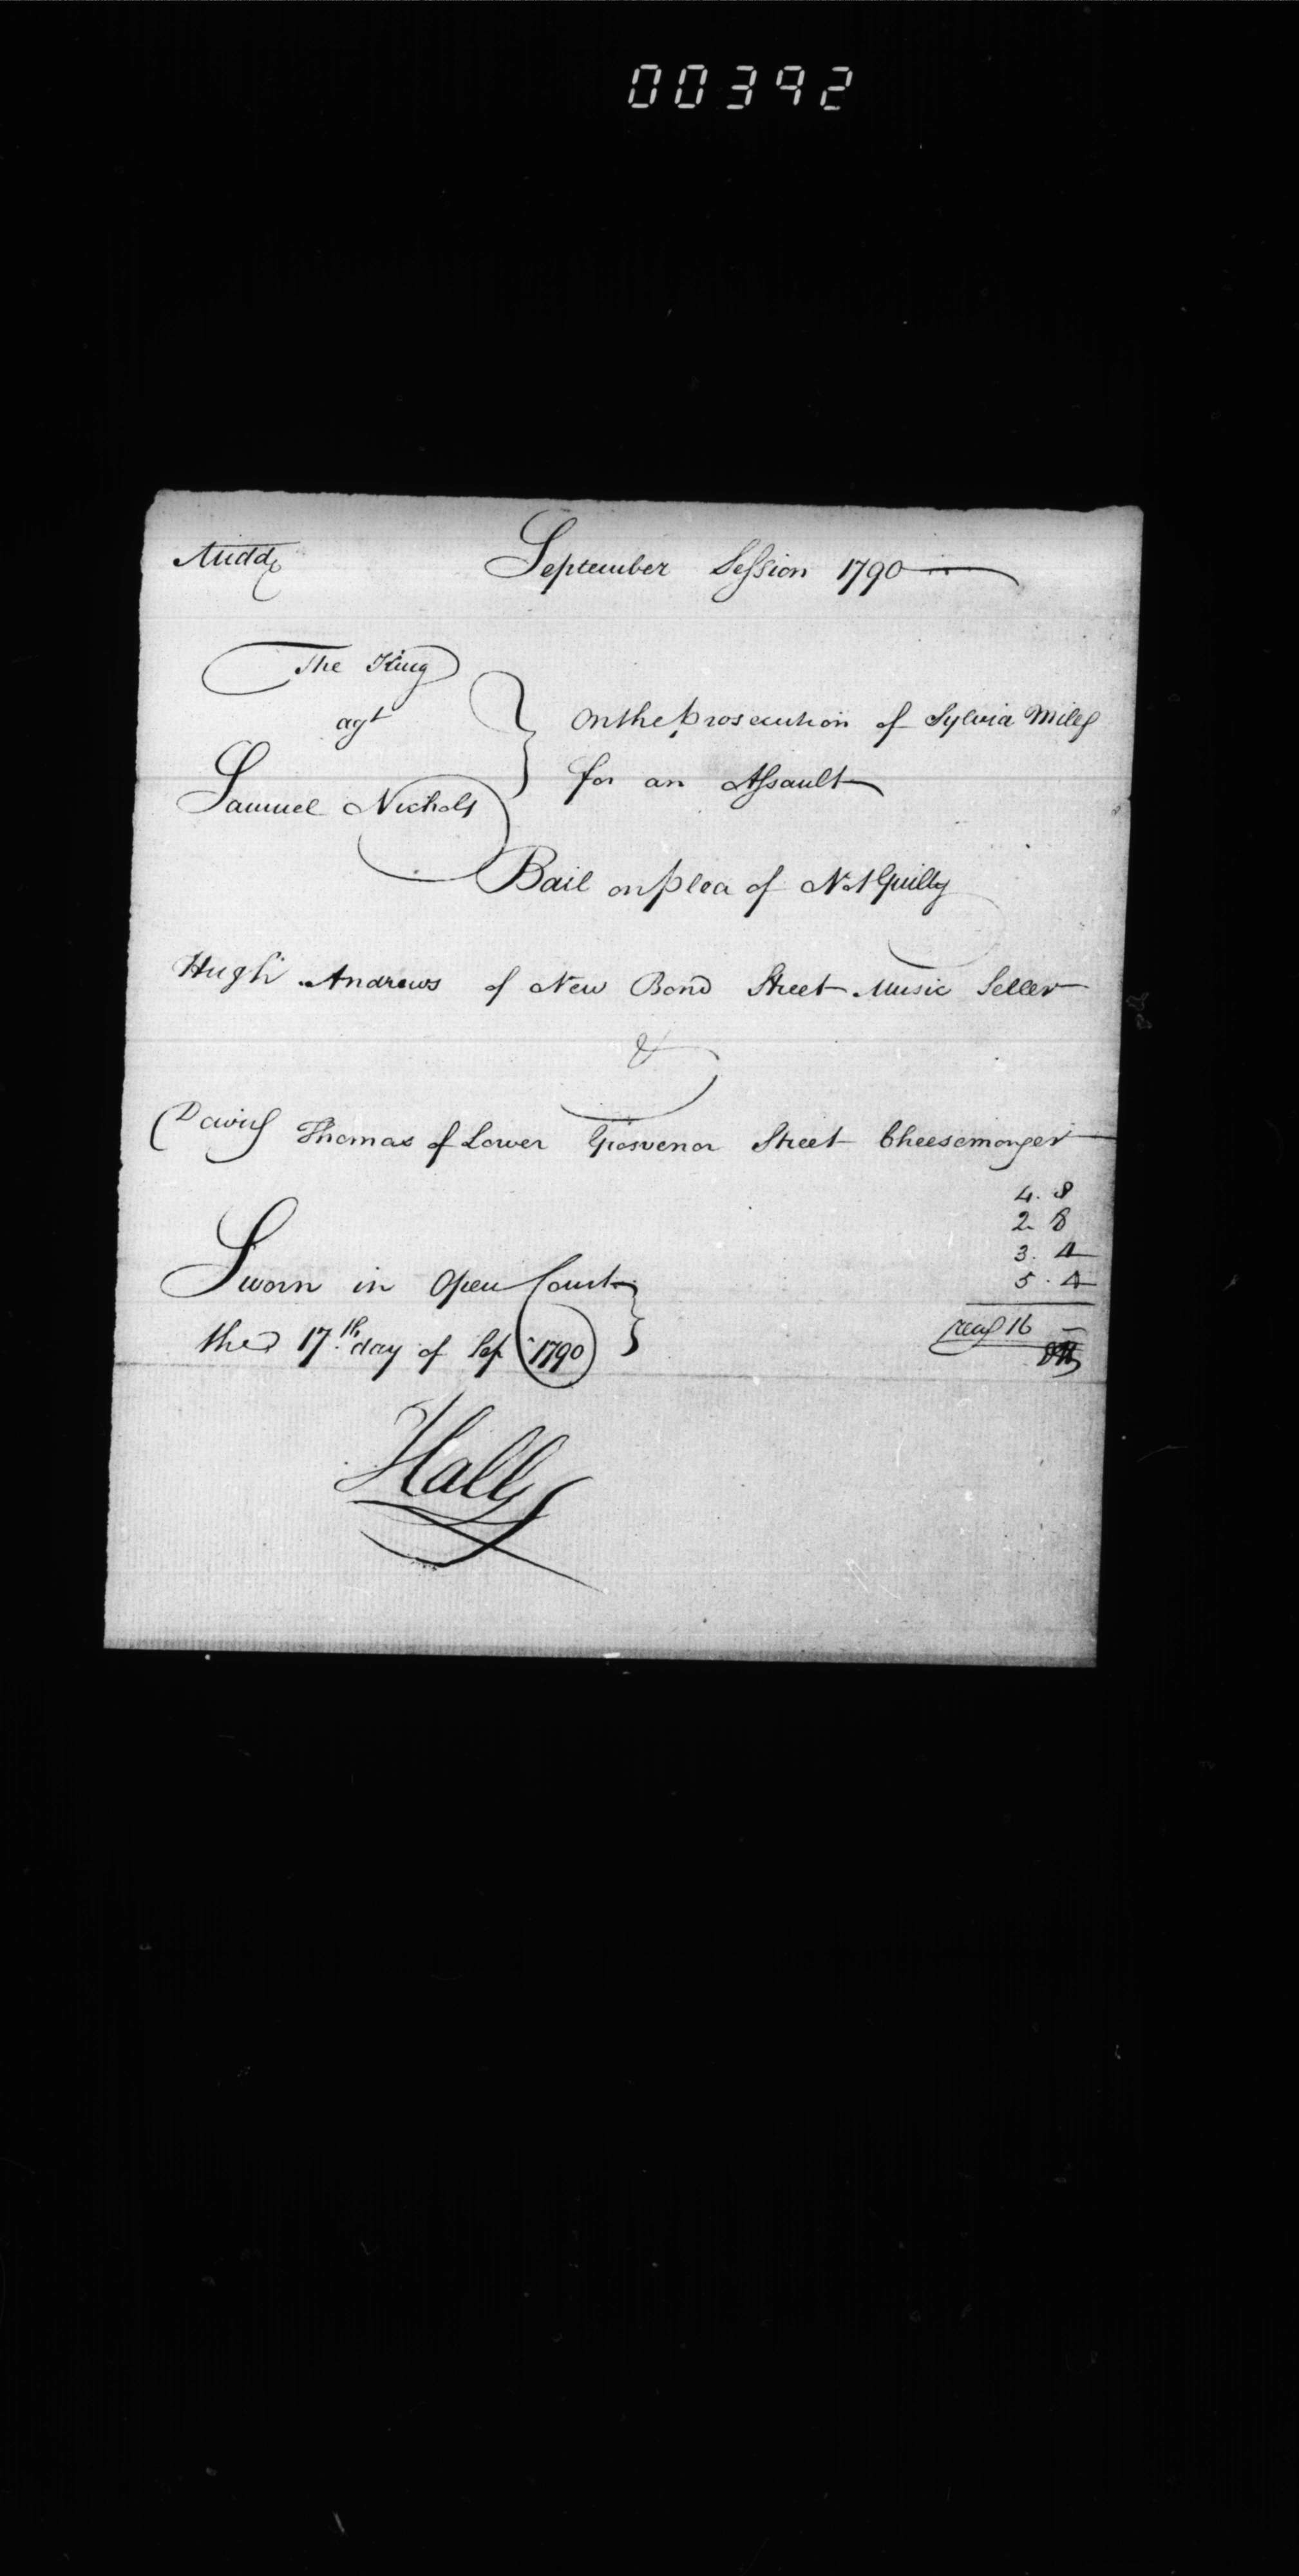 00392
Middx September Session 1790
The King
agt
Samuel Nichols
on the prosecution of Sylvia Mills
for an Assault
Bail on plea of Not Guilty
Hugh Andrews of New Bond Street Music Seller
&
David Thomas of Lower Grosvenor Street Cheesemonger
4. 8
2. 8
3. 4
5. 4
16 —
Sworn in Open Court
the 17th day of Sep 1790
Hall